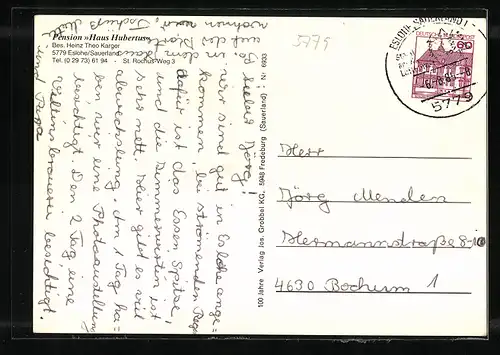 Pension »Haus Hubertus«
Bes. Heinz Theo Karger
5779 Eslohe/Sauerland
Tel. (0 29 73) 61 94 - St. Rochus-Weg 3
5779
ESLOHE
60
5779
100 Jahre Verlag Jos. Grobbel KG., 5948 Fredeburg (Sauerland) Nr. 6933
Jörg!
wir sind gut in Eslohe ange-
kommen, bei strömenden Regen
dafür ist das Essen Spitze,
und die Zimmerwirtin ist
sehr nett. Hier gibt es viel
abwechslung. Am 1 Tag ha-
ben wir eine Photoaustellung
besichtigt. Den 2 Tag eine
Veltins brauerei besichtigt.
wohnen
auf dem
und Papa
Herr
Jörg Menden
Hermannstraße 8
4630 Bochum 1